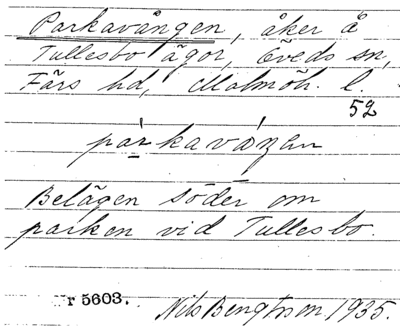 Parkavången, åker å
Tullesbo ägor, Öveds sn,
Färs hd, Malmöh. l.
52
parkavåŋan
Belägen söder om
parken vid Tullesbo.
Nr 5603. Nils Bengtsson 1935.